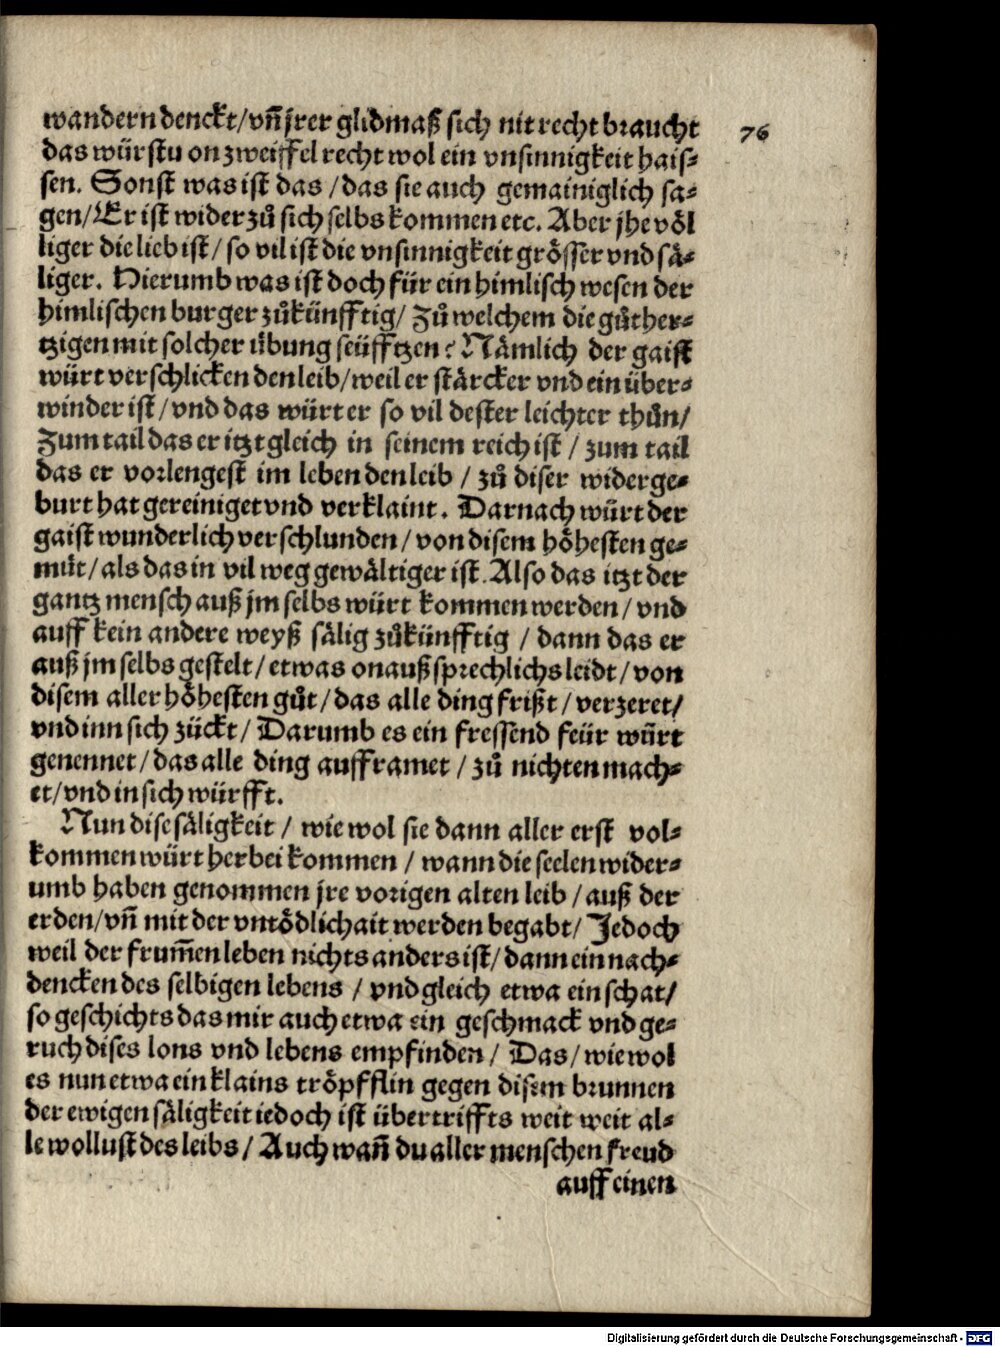 wandern denckt/vñ jrer glidmaß sich nit recht braucht
76
das würstu on zweiffel recht wol ein vnsinnigkeit hais⸗
sen. Sonst was ist das /das sie auch gemainiglich sa⸗
gen/Er ist wider zů sich selbs kommen etc. Aber jhe völ
liger die lieb ist/ so vil ist die vnsinnigkeit grösser vnd sä⸗
liger. Hierumb was ist doch für ein himlisch wesen der
himlischen burger zůkünfftig/ Zů welchem die gůther⸗
tzigen mit solcher übung seüfftzen? Nämlich der gaist
würt verschlicken den leib/weil er stärcker vnd ein über⸗
winder ist/vnd das würt er so vil dester leichter thůn/
Zum tail das er itzt gleich in seinem reich ist / zum tail
das er vorlengest im leben den leib / zů diser widerge⸗
burt hat gereiniget vnd verklaint. Darnach würt der
gaist wunderlich verschlunden/von disem höhesten ge⸗
müt/als das in vil weg gewältiger ist. Also das itzt der
gantz mensch auß jm selbs würt kommen werden/vnd
auff kein andere weyß sälig zůkünfftig / dann das er
auß jm selbs gestelt/etwas onaußsprechlichs leidt/von
disem aller höhesten gůt/das alle ding frißt/verzeret/
vnd inn sich zückt/ Darumb es ein fressend feür würt
genennet/das alle ding aufframet/zů nichten mach⸗
et/vnd in sich würfft.
Nun dise säligkeit / wie wol sie dann aller erst vol⸗
kommen würt herbei kommen / wann die seelen wider⸗
umb haben genommen jre vorigen alten leib/auß der
erden/vñ mit der vntödlichait werden begabt/ Jedoch
weil der frum̃en leben nichts anders ist/dann ein nach⸗
dencken des selbigen lebens / vnd gleich etwa ein schat/
so geschichts das mir auch etwa ein geschmack vnd ge⸗
ruch dises lons vnd lebens empfinden/ Das/wie wol
es nun etwa ein klains tröpfflin gegen disem brunnen
der ewigen säligkeit iedoch ist übertriffts weit weit al⸗
le wollust des leibs/Auch wañ du aller menschen freud
auff einen
Digitalisierung gefördert durch die Deutsche Forschungsgemeinschaft - DFG